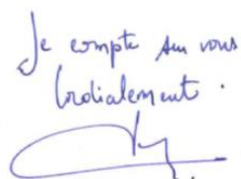 Je compte sur vous
Cordialement.